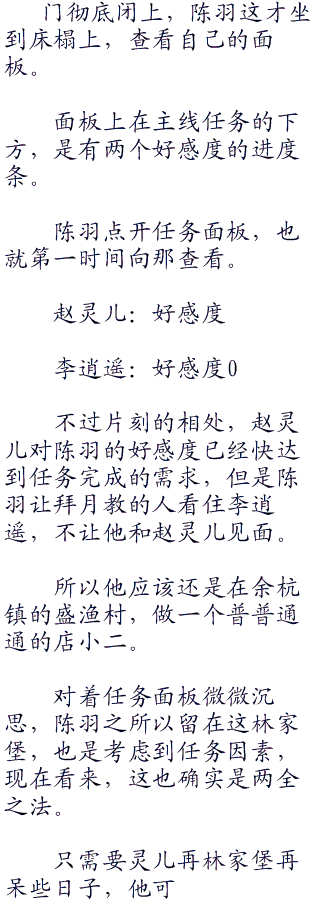 门彻底闭上，陈羽这才坐
到床榻上，查看自己的面
板。
面板上在主线任务的下
方，是有两个好感度的进度
条。
陈羽点开任务面板，也
就第一时间向那查看。
赵灵儿：好感度
李逍遥：好感度0
不过片刻的相处，赵灵
儿对陈羽的好感度已经快达
到任务完成的需求，但是陈
羽让拜月教的人看住李逍
遥，不让他和赵灵儿见面。
所以他应该还是在余杭
镇的盛渔村，做一个普普通
通的店小二。
对着任务面板微微沉
思，陈羽之所以留在这林家
堡，也是考虑到任务因素，
现在看来，这也确实是两全
之法。
只需要灵儿再林家堡再
呆些日子，他可